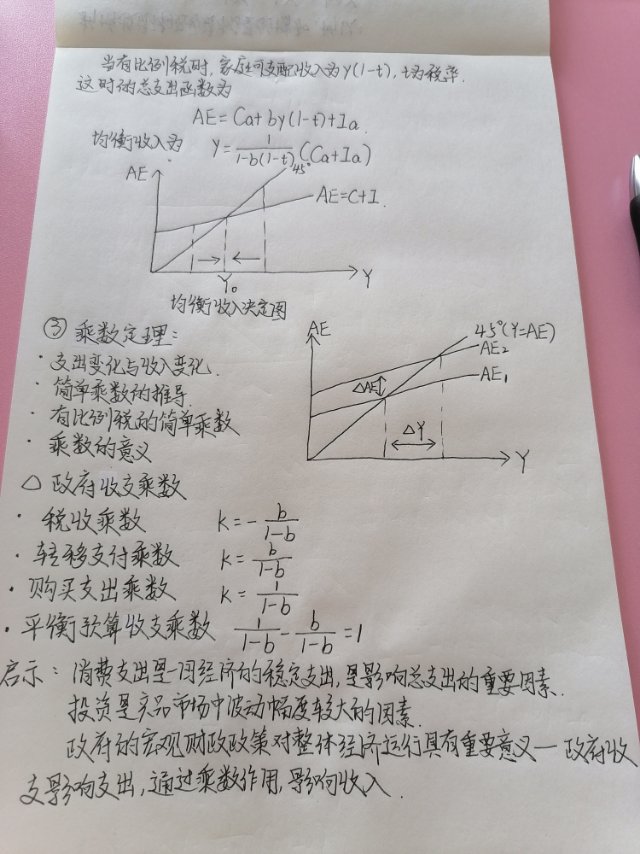 当有比例税时,家庭可支配收入为Y(1-t),t为税率.
这时的总支出函数为
AE=Ca+by(1-t)+Ia
均衡收入为 Y=\frac{1}{1-b(1-t)}(Ca+Ia)
AE
45°
AE=C+I.
Y₀
Y
均衡收入决定图
③乘数定理:
·支出变化与收入变化.
·简单乘数的推导.
·有比例税的简单乘数
·乘数的意义
AE
45°(Y=AE)
AE₂
AE₁
△AE
△Y
Y
△政府收支乘数
·税收乘数 k=-\frac{b}{1-b}
·转移支付乘数 k=\frac{b}{1-b}
·购买支出乘数 k=\frac{1}{1-b}
·平衡预算收支乘数 \frac{1}{1-b}-\frac{b}{1-b}=1
启示:消费支出是一国经济的稳定支出,是影响总支出的重要因素.
投资是产品市场中波动幅度较大的因素.
政府的宏观财政政策对整体经济运行具有重要意义—政府收
支影响支出,通过乘数作用,影响收入.